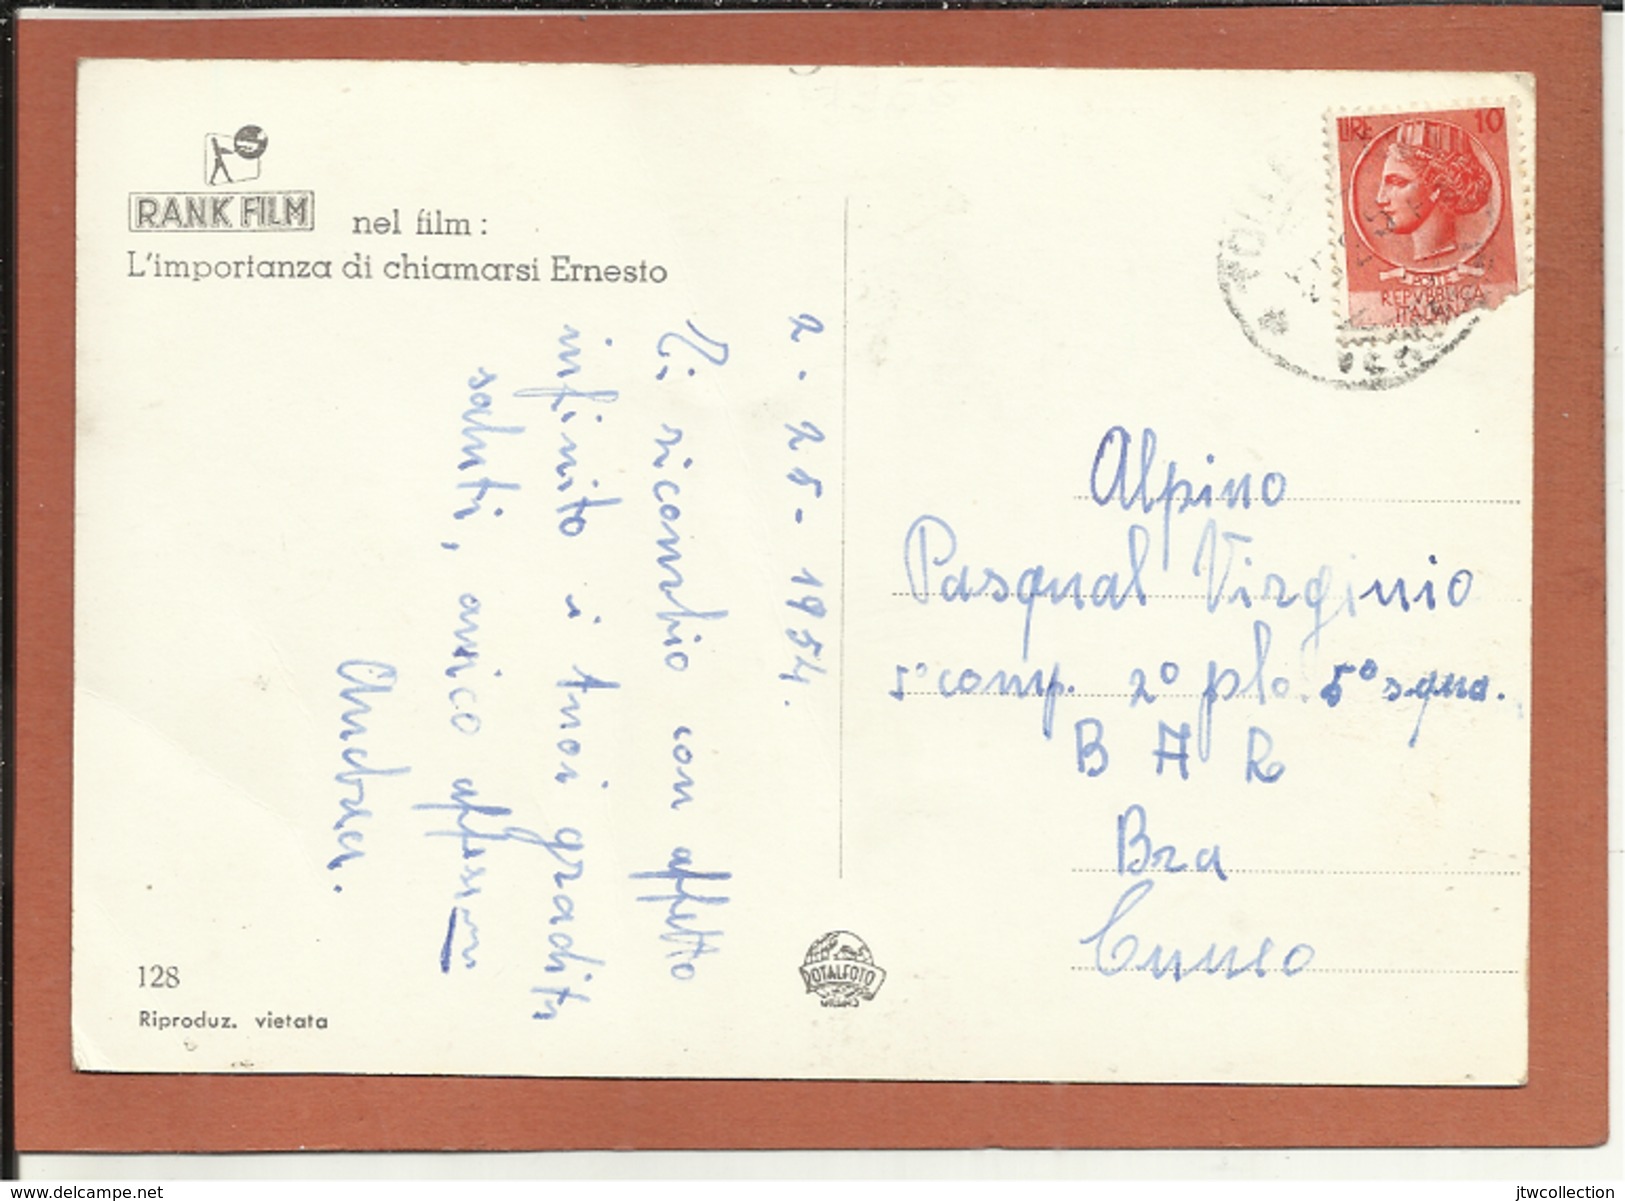 RANK FILM nel film:
L'importanza di chiamarsi Ernesto
2. 25-1954.
Ti ricambio con affetto
infinito i tuoi graditi
saluti, amico
Andrea.
128
Riproduz. vietata
ROTALFOTO
LIRE 10
POSTE
REPVBBLICA
ITALIANA
Alpino
Pasqual Virginio
5° comp. 2° plo. 5° squa.
B A R
Bra
Cuneo
delcampe.net
jtwcollection